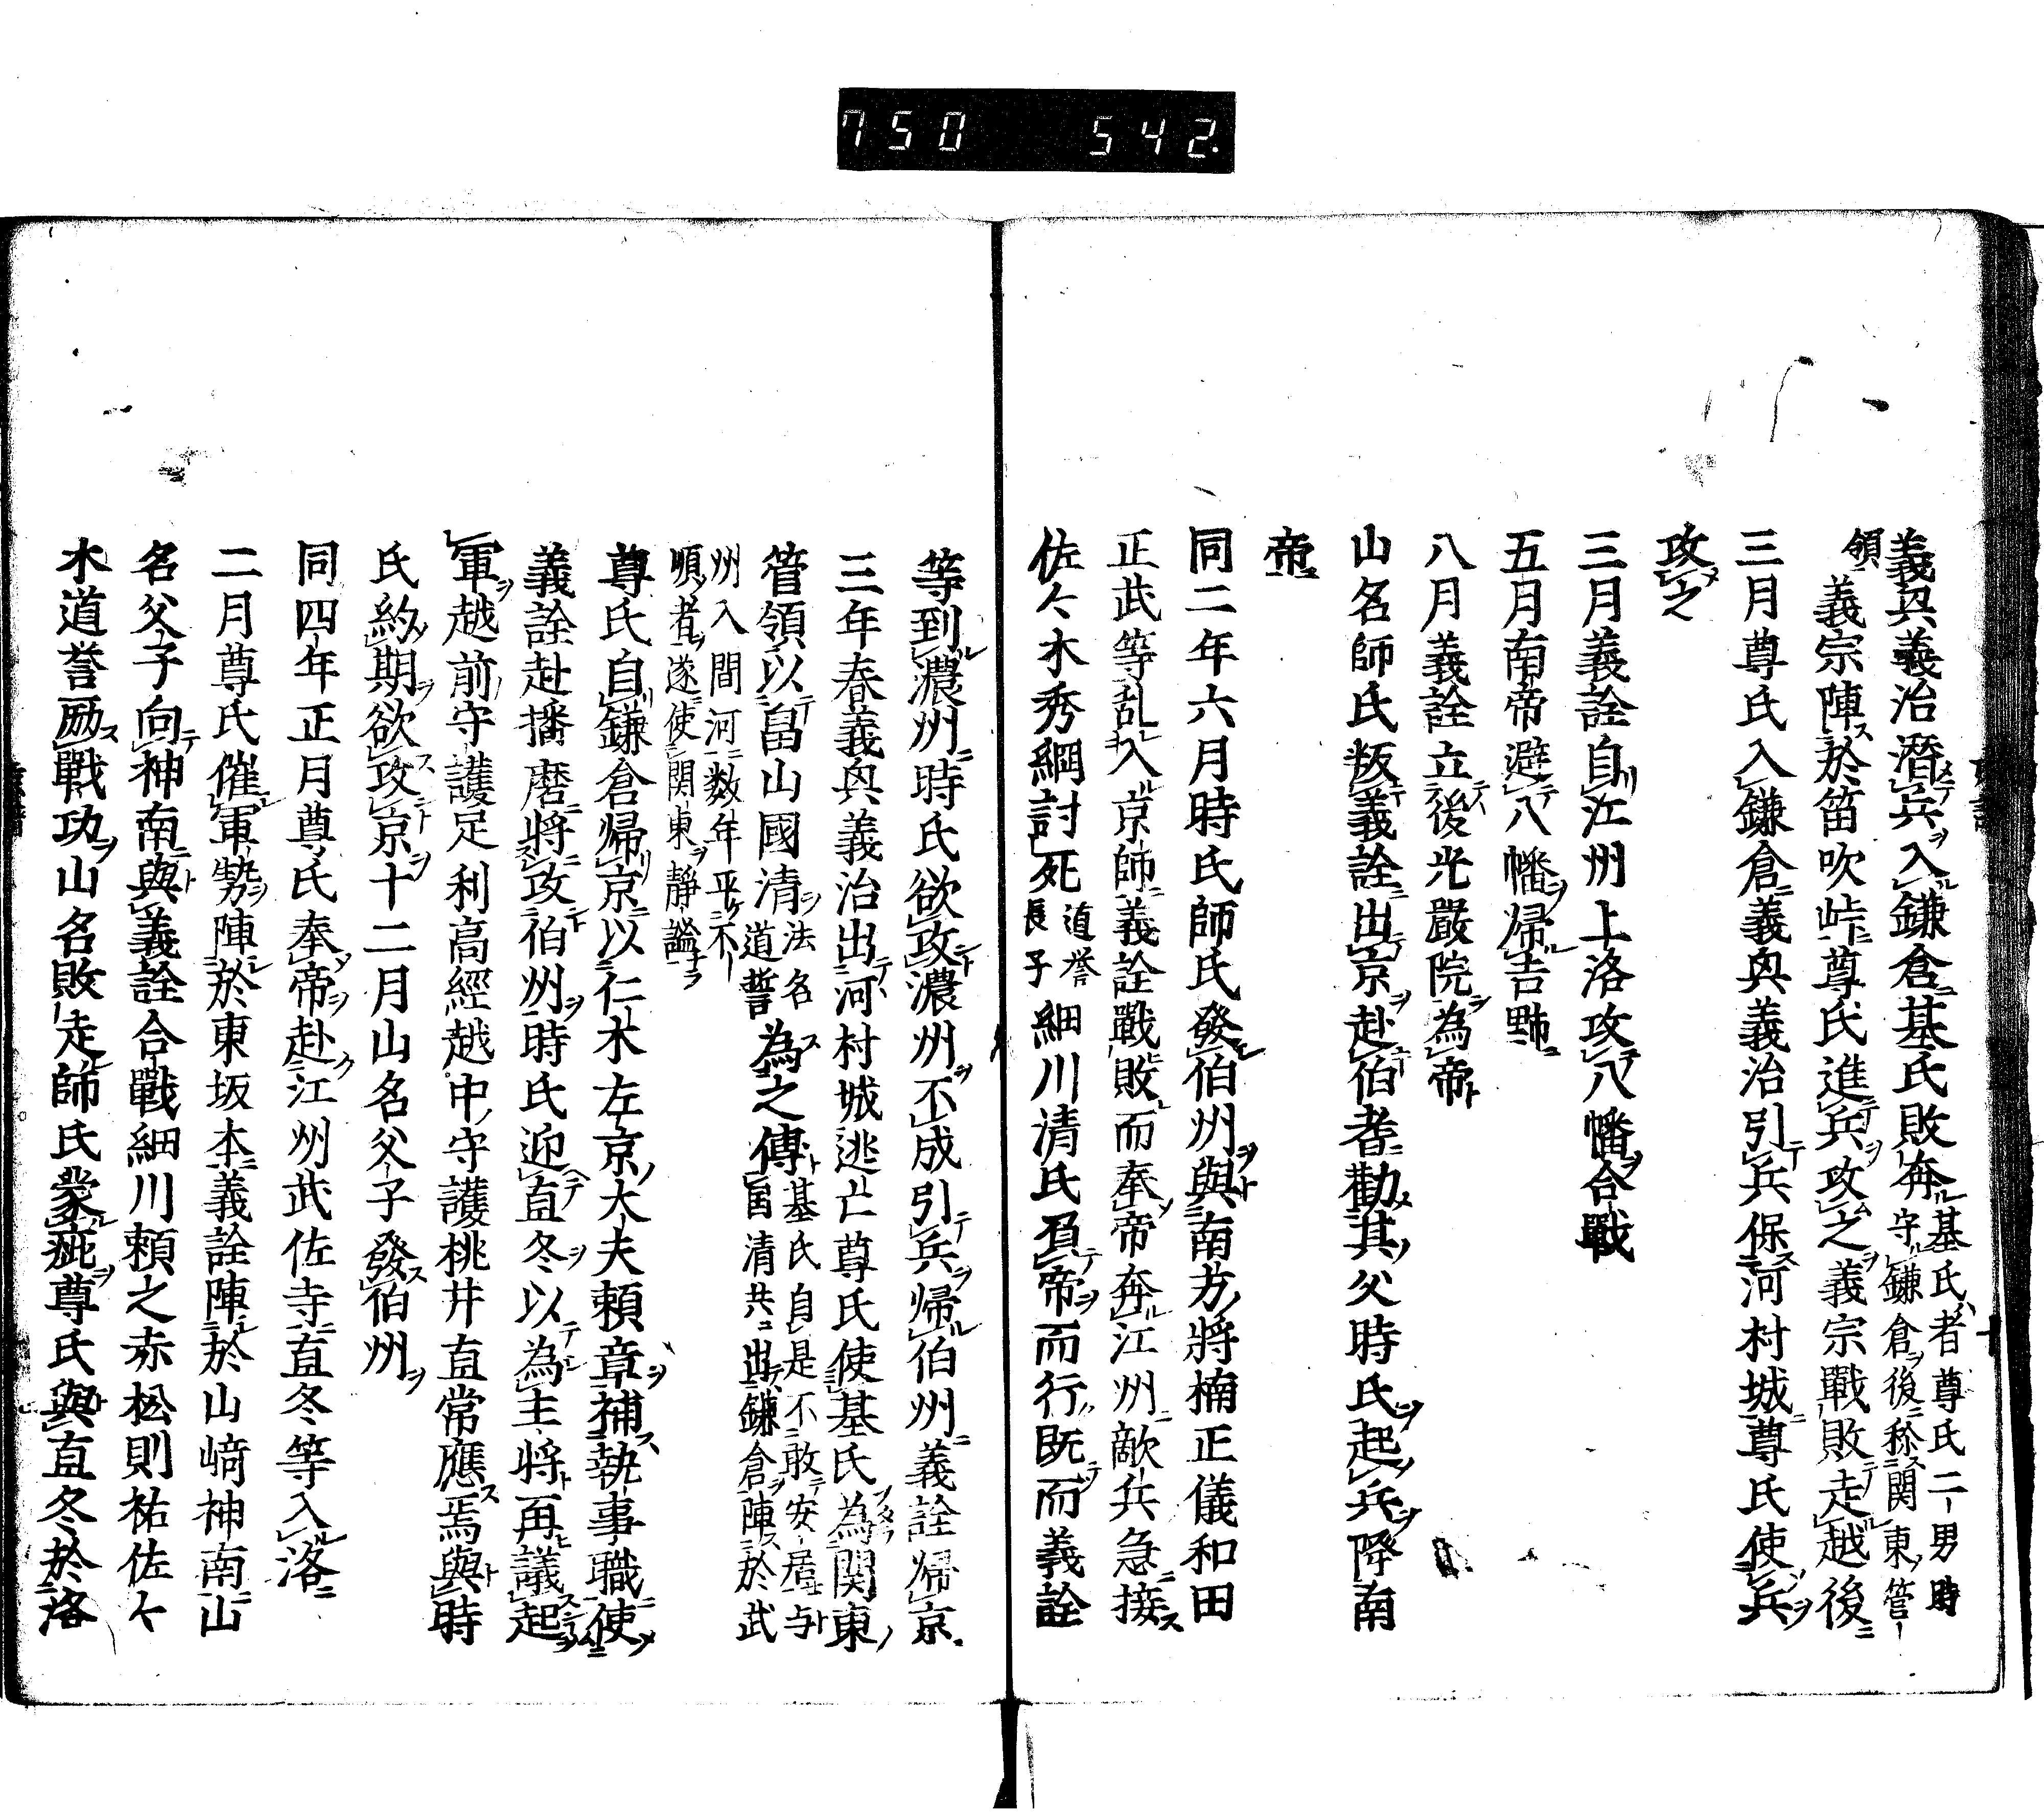 750 542.
義與義治潜兵入鎌倉基氏敗奔基氏者尊氏二男時守鎌倉後称関東管
領義宗陣於笛吹峠尊氏進兵攻之義宗戰敗走越後
三月尊氏入鎌倉義與義治引兵保河村城尊氏使兵
攻之
三月義詮自江州上洛攻八幡合戰
五月南帝避八幡帰吉野
八月義詮立後光嚴院為帝
山名師氏叛義詮出京赴伯耆勸其父時氏起兵降南
帝
同二年六月時氏師氏發伯州與南方將楠正儀和田
正武等乱入京師義詮戰敗而奉帝奔江州敵兵急接
佐々木秀綱討死道誉長子細川清氏負帝而行既而義詮
等到濃州時氏欲攻濃州不成引兵帰伯州義詮帰京
三年春義與義治出河村城逃亡尊氏使基氏為関東
管領以畠山國清法名道誓為之傳基氏自是不敢安居与國清共出鎌倉陣於武
州入間河数年平不順者遂使関東靜謐
尊氏自鎌倉帰京以仁木左京大夫頼章補執事職使
義詮赴播磨將攻伯州時氏迎直冬以為主將再議起
軍越前守護足利高經越中守護桃井直常應焉與時
氏約期欲攻京十二月山名父子發伯州
同四年正月尊氏奉帝赴江州武佐寺直冬等入洛
二月尊氏催軍勢陣於東坂本義詮陣於山﨑神南山
名父子向神南與義詮合戰細川頼之赤松則祐佐々
木道誉励戰功山名敗走師氏蒙疵尊氏與直冬於洛